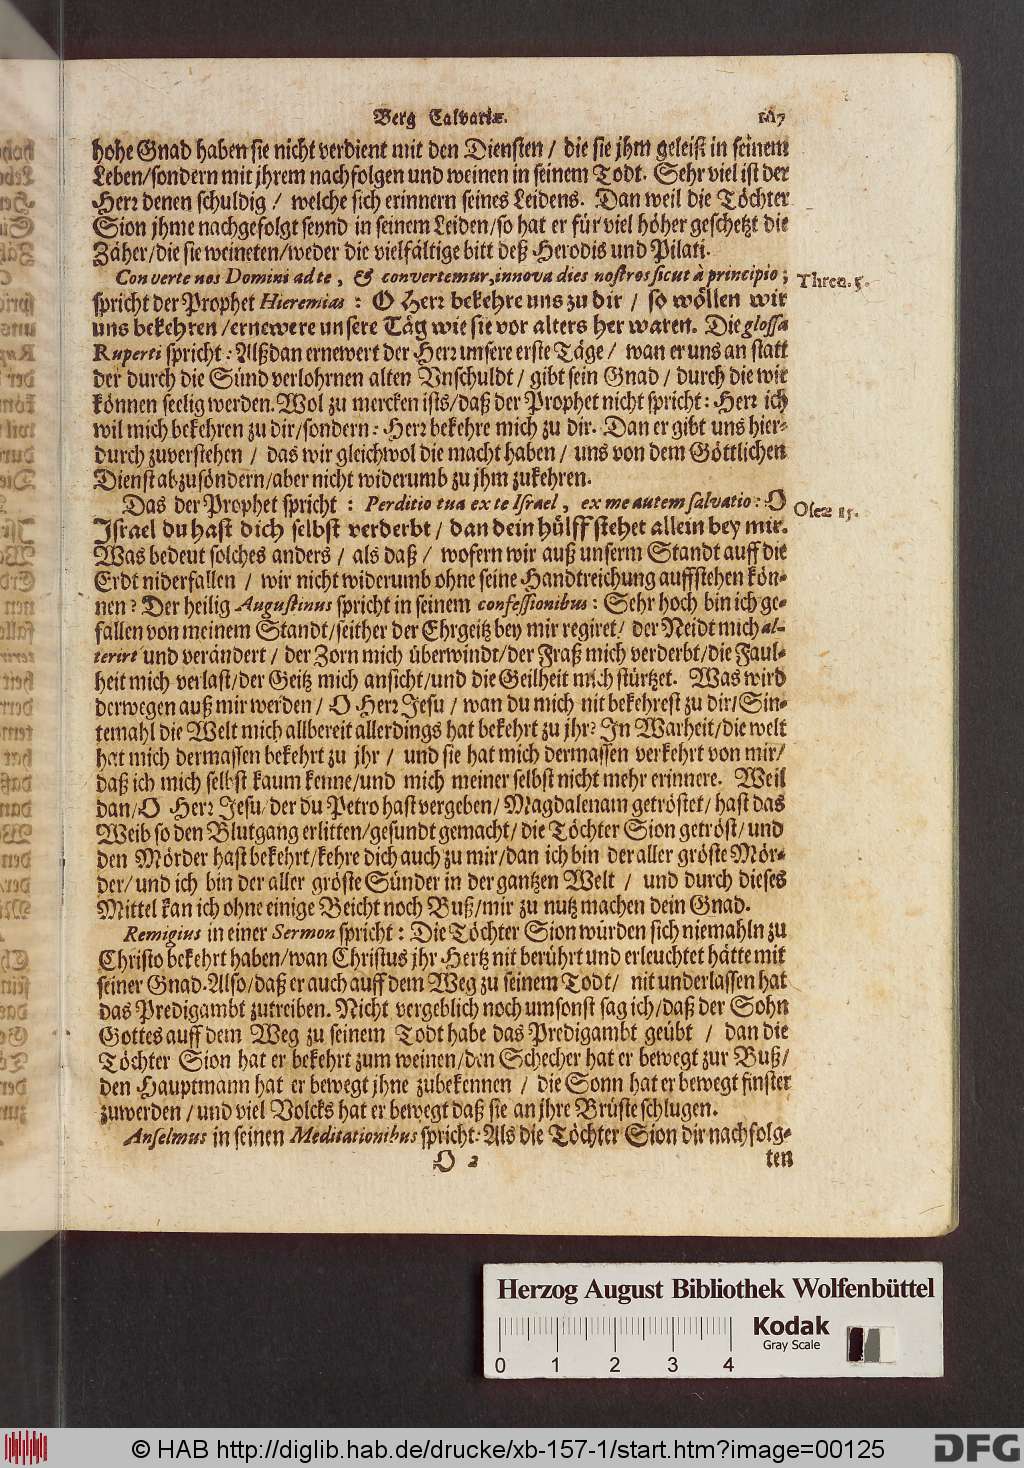 Berg Calvariæ. 107
hohe Gnad haben sie nicht verdient mit den Diensten / die sie jhm geleist in seinem
Leben/sondern mit jhrem nachfolgen und weinen in seinem Todt. Sehr viel ist der
Herr denen schuldig / welche sich erinnern seines Leidens. Dan weil die Töchter
Sion jhme nachgefolgt seynd in seinem Leiden/so hat er für viel höher geschetzt die
Zäher/die sie weineten/weder die vielfältige bitt deß Herodis und Pilati.
Converte nos Domini ad te, & convertemur, innova dies nostros sicut à principio; Thren. 5.
spricht der Prophet Hieremias : O Herr bekehre uns zu dir / so wöllen wir
uns bekehren /ernewere unsere Täg wie sie vor alters her waren. Die glossa
Ruperti spricht : Alßdan ernewert der Herr unsere erste Täge / wan er uns an statt
der durch die Sünd verlohrnen alten Vnschuldt / gibt sein Gnad / durch die wir
können seelig werden. Wol zu mercken ists/daß der Prophet nicht spricht : Herr ich
wil mich bekehren zu dir/sondern : Herr bekehre mich zu dir. Dan er gibt uns hier-
durch zuverstehen / das wir gleichwol die macht haben / uns von dem Göttlichen
Dienst abzusöndern/aber nicht widerumb zu jhm zukehren.
Das der Prophet spricht : Perditio tua ex te Israel, ex me autem salvatio : O Oseæ 15.
Israel du hast dich selbst verderbt / dan dein hülff stehet allein bey mir.
Was bedeut solches anders / als daß / wofern wir auß unserm Standt auff die
Erdt niderfallen / wir nicht widerumb ohne seine Handtreichung auffstehen kön-
nen? Der heilig Augustinus spricht in seinem confessionibus : Sehr hoch bin ich ge-
fallen von meinem Standt/seither der Ehrgeitz bey mir regiret/ der Neidt mich al-
terirt und verändert / der Zorn mich überwindt/der Fraß mich verderbt/die Faul-
heit mich verlast/der Geitz mich ansicht/und die Geilheit mich stürtzet. Was wird
derwegen auß mir werden / O Herr Jesu / wan du mich nit bekehrest zu dir/ Sin-
temahl die Welt mich allbereit allerdings hat bekehrt zu jhr? In Warheit/die welt
hat mich dermassen bekehrt zu jhr / und sie hat mich dermassen verkehrt von mir/
daß ich mich selbst kaum kenne/und mich meiner selbst nicht mehr erinnere. Weil
dan/O Herr Jesu/der du Petro hast vergeben/ Magdalenam getröstet/ hast das
Weib so den Blutgang erlitten/gesundt gemacht/ die Töchter Sion getröst/ und
den Mörder hast bekehrt/kehre dich auch zu mir/dan ich bin der aller gröste Mör-
der/ und ich bin der aller gröste Sünder in der gantzen Welt / und durch dieses
Mittel kan ich ohne einige Beicht noch Buß/mir zu nutz machen dein Gnad.
Remigius in einer Sermon spricht : Die Töchter Sion würden sich niemahln zu
Christo bekehrt haben/wan Christus jhr Hertz nit berührt und erleuchtet hätte mit
seiner Gnad. Also/daß er auch auff dem Weg zu seinem Todt/ nit underlassen hat
das Predigambt zutreiben. Nicht vergeblich noch umsonst sag ich/daß der Sohn
Gottes auff dem Weg zu seinem Todt habe das Predigambt geübt / dan die
Töchter Sion hat er bekehrt zum weinen/den Schecher hat er bewegt zur Buß/
den Hauptmann hat er bewegt jhne zubekennen / die Sonn hat er bewegt finster
zuwerden / und viel Volcks hat er bewegt daß sie an jhre Brüste schlugen.
Anselmus in seinen Meditationibus spricht : Als die Töchter Sion dir nachfolg-
O 2 ten
Herzog August Bibliothek Wolfenbüttel
Kodak
Gray Scale
0 1 2 3 4
© HAB http://diglib.hab.de/drucke/xb-157-1/start.htm?image=00125
DFG